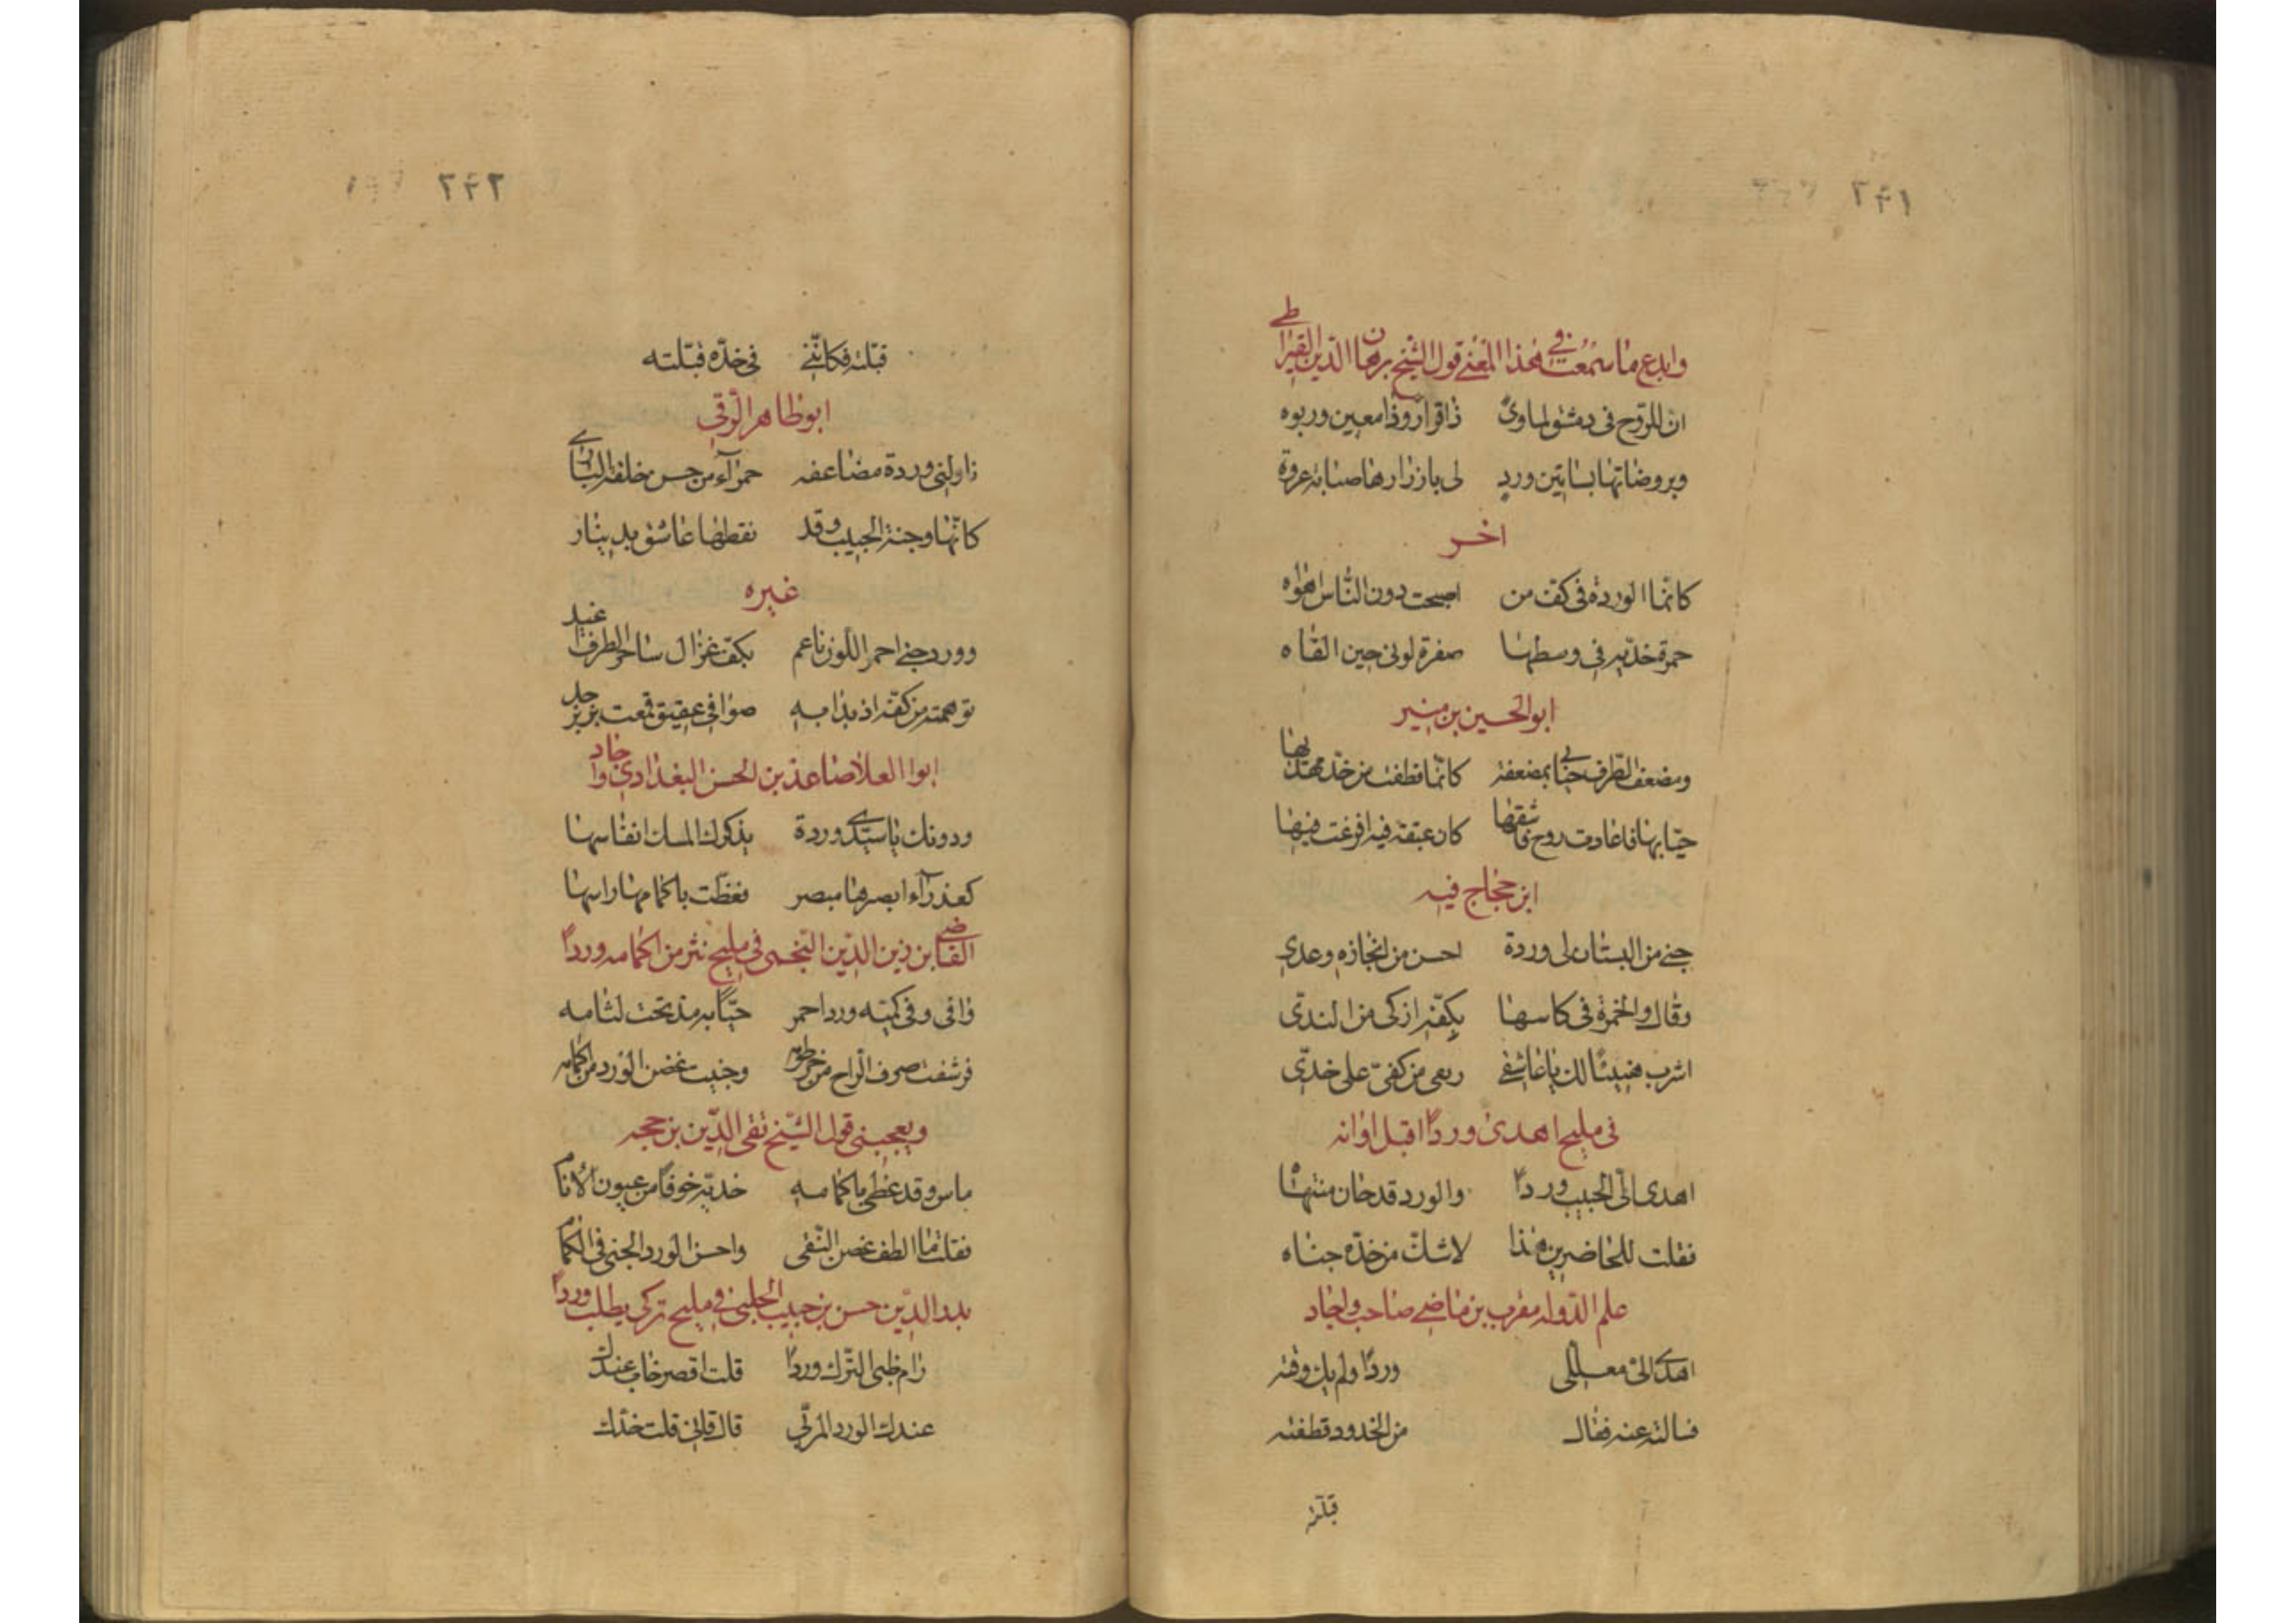 ٢٤١
وابدع ما سمعت في هذا المعنى قول الشيخ برهان الدين القيراطي
ان للروح في دمشق لماوى ذا قرار وذا معين وربوه
وبروضاتها بساتين ورد لي بازرارها صبابة عروة
اخر
كانما الوردة في كف من اصبحت دون الناس اهواه
حمرة خديه في وسطها صفرة لوني حين القاه
ابو الحسين بن منير
ومضعف الطرف حياني بمضعفة كانما قطفت من خد مهديها
حيا بها فاعادت روح عاشقها كان عبقة فيه افرغت فيها
ابن حجاج فيه
جنى من البستان لي وردة احسن من انجازه وعدي
وقال والخمرة في كاسها بكفه ازكى من الندى
اشرب هنيئا لك يا عاشقي ريقي من كفي على خدي
في مليح اهدى وردا قبل اوانه
اهدى الي الحبيب وردا والورد قد حان منتهاه
فقلت للحاضرين هذا لا شك من خده جناه
علم الدوله مقرب بن ماضي صاحب واجاد
اهدى الى معللي وردا ولم يك وقته
فسالته عنه فقال من الخدود قطفته
قبلته
٢٤٢
قبلته فكانني في خده قبلته
ابو طاهر الرقي
ناولني وردة مضاعفه حمراء من حسن خلقة الباري
كانها وجنة الحبيب وقد نقطها عاشق بدينار
غيره
وورد جني احمر اللون ناعم بكف غزال ساحر الطرف اغيد
توهمته من كفه اذ بدا به صوافي عقيق قمعت بزبرجد
ابو العلا صاعد بن الحسن البغدادي واجاد
ودونك يا سيدي وردة يذكرك المسك انفاسها
كعذراء ابصرها مبصر فغطت باكمامها راسها
القاضي ابن زين الدين النخمي في مليح نثر من اكمامه وردا
وافى وفي كميه ورد احمر حيا به مذ تحت لثامه
فرشفت صرف الراح من وجنيت غض الورد من اكمامه
ويعجبني قول الشيخ تقي الدين بن حجه
ماس وقد غطى باكمامه خديه خوفا من عيون الانام
فقلت ما الطف غصن النقى واحسن الورد الجني في الكمام
بدر الدين حسن بن حبيب الحلبي في مليح تركي يطلب وردا
رام ظبي الترك وردا قلت اقصر خاب عندك
عندك الورد المربي قال قاني قلت خدك